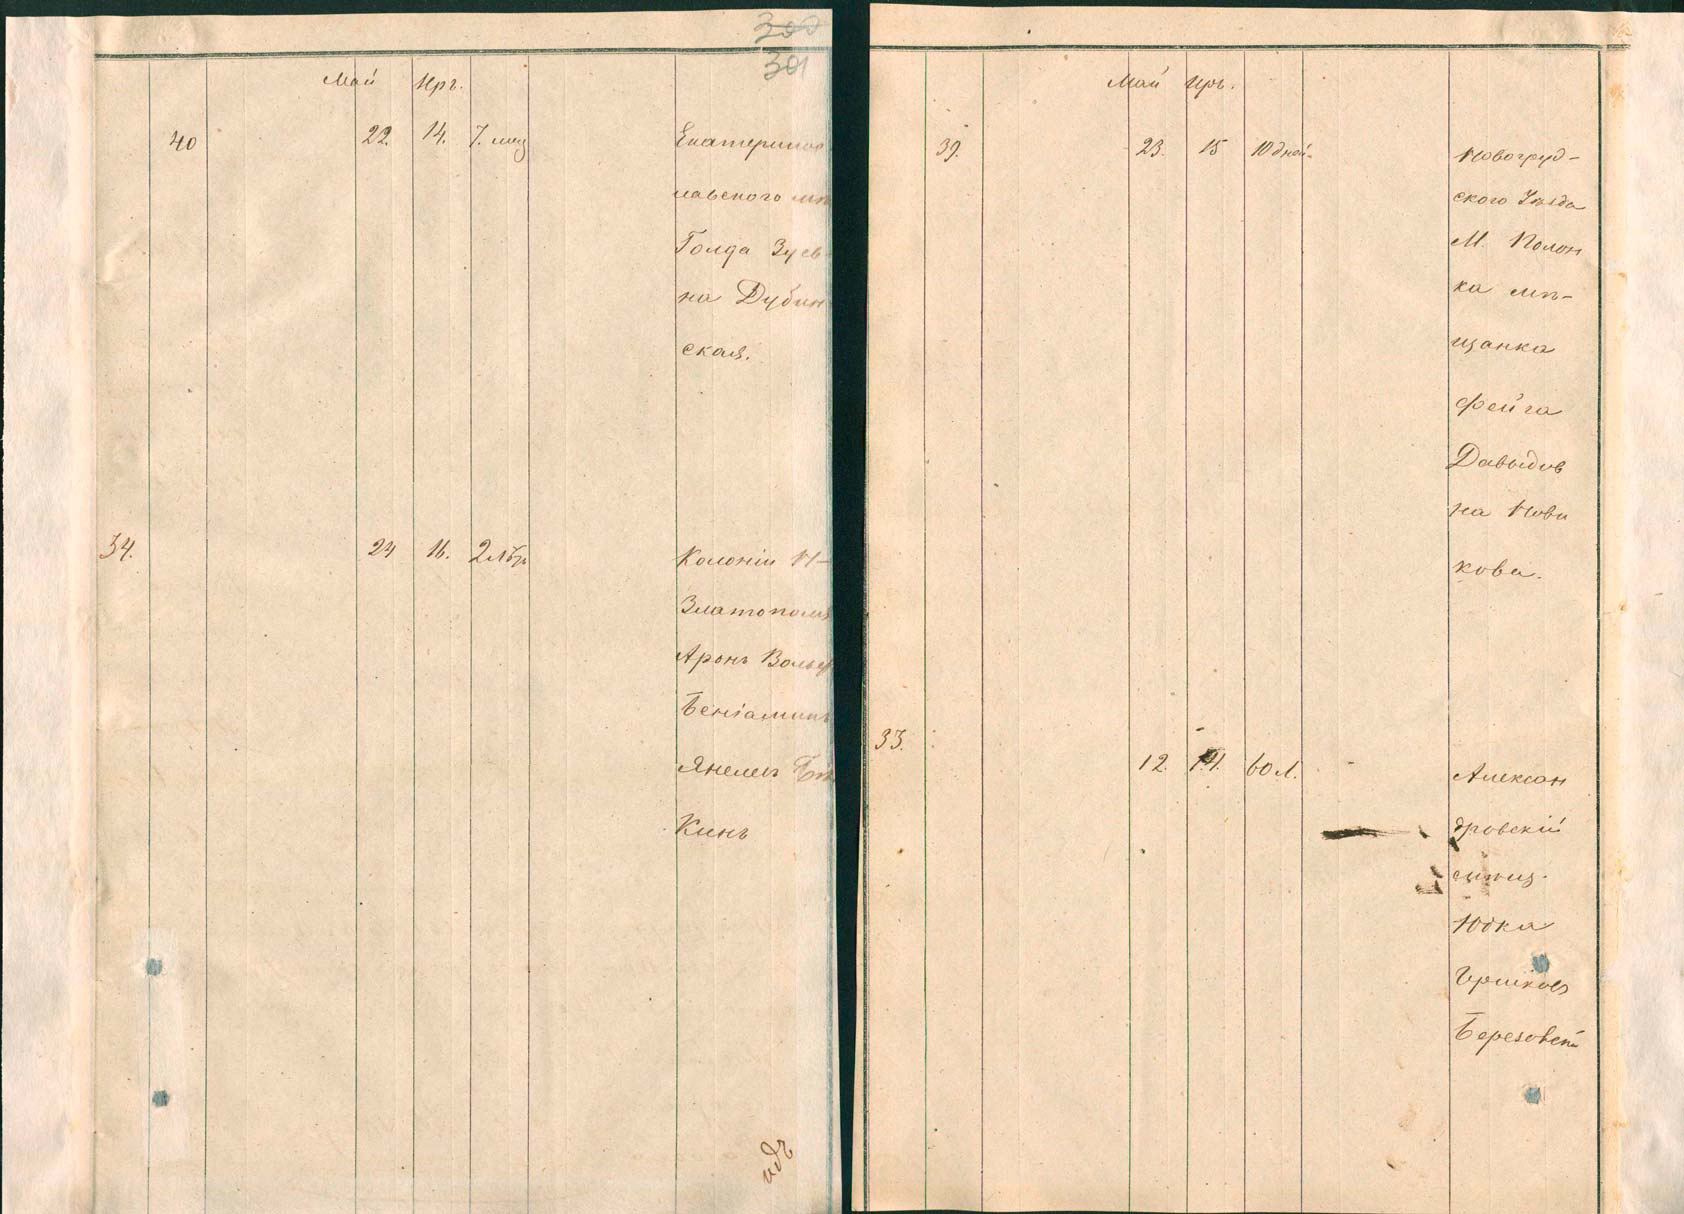 300
301
Май Ияръ.
40 22. 14. 7. мец
Екатеринос
лавского мѣ
Голда Зусев-
на Дубин
ская.
34. 24 16. 2 лѣт
Колоніи Н-
Златополя
Аронъ Вольф
Беніаминъ
Янкелев
Кинъ
Май Ияръ.
39. 23. 15 10 дней-
Новогруд-
ского Уѣзда
М. Полон
ка мѣ-
щанка
Фейга
Давыдов
на Нови
кова.
33. 12. 14. 60 л.
Алексан
дровскій
мѣщ.
Юдка
Гершков
Березовскій